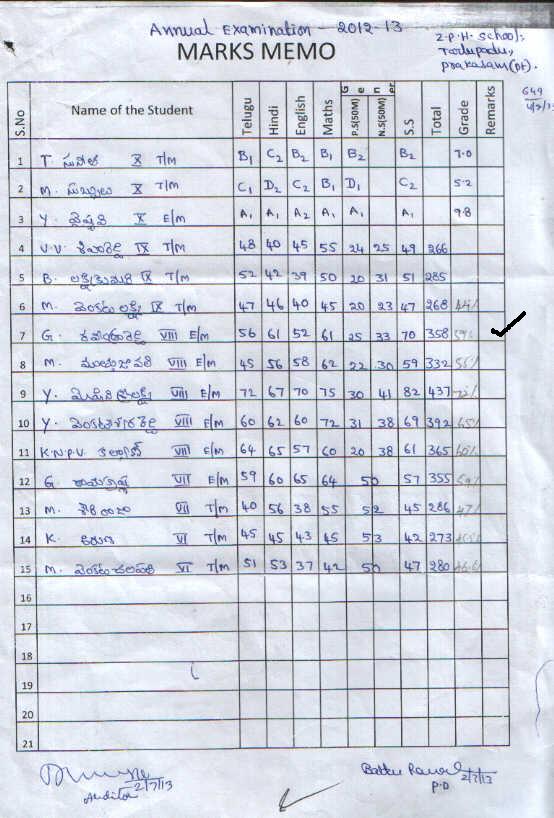 Annual Examination - 2012-13
MARKS MEMO
Z.P.H. School,
Tadupadu,
Prakasam(Dt).
649
S.No Name of the Student Telugu Hindi English Maths Gen P.S(50M) N.S(50M) S.S Total Grade Remarks
1 T. సునీత X T/M B1 C2 B2 B1 B2 B2 7.0
2 M. సుబ్బులు X T/M C1 D2 C2 B1 D1 C2 5.2
3 Y. వైష్ణవి X E/M A1 A1 A2 A1 A1 A1 9.8
4 V.V. శివారెడ్డి IX T/M 48 40 45 55 24 25 49 266
5 B. లక్ష్మీకుమారి IX T/M 52 42 39 50 20 31 51 285
6 M. వెంకటలక్ష్మి IX T/M 47 46 40 45 20 23 47 268
7 G. VIII E/M 56 61 52 61 25 33 70 358
8 M. VIII E/M 45 56 58 62 22 30 59 332
9 Y. VIII E/M 72 67 70 75 30 41 82 437
10 Y. వెంకటేశ్వరరెడ్డి VIII E/M 60 62 60 72 31 38 69 392
11 K.N.P.V. కళ్యాణ్ VIII E/M 64 65 57 60 20 38 61 365
12 G. రామకృష్ణ VII E/M 59 60 65 64 50 57 355
13 M. VII T/M 40 56 38 55 52 45 286
14 K. కిరణ్ VI T/M 45 45 43 45 53 42 273
15 M. వెంకటచలపతి VI T/M 51 53 37 42 50 47 280
16
17
18
19
20
21
Auditor 2/7/13
2/7/13
P.D